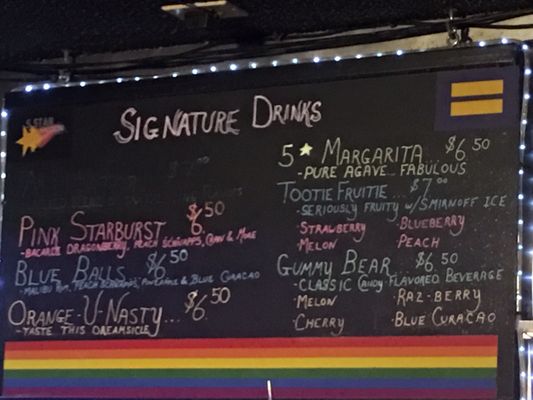 5 STAR
SIGNATURE DRINKS
PINK STARBURST $6.50
- BACARDI DRAGONBERRY, PEACH SCHNAPPS, CRAN & MORE
BLUE BALLS $6.50
- MALIBU RUM, PEACH SCHNAPPS, PINEAPPLE & BLUE CURACAO
ORANGE-U-NASTY... $6.50
- TASTE THIS DREAMSICLE
5★ MARGARITA $6.50
- PURE AGAVE... FABULOUS
TOOTIE FRUITIE... $7.00
- SERIOUSLY FRUITY W/ SMIRNOFF ICE
- STRAWBERRY · BLUEBERRY
- MELON · PEACH
GUMMY BEAR $6.50
- CLASSIC CANDY FLAVORED BEVERAGE
- MELON · RAZ-BERRY
· CHERRY · BLUE CURACAO